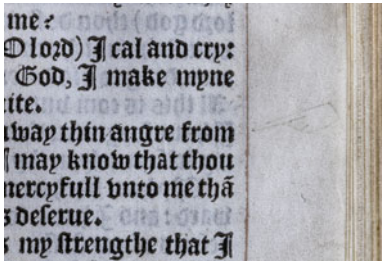 me?
O lord) I cal and cry:
God, I make myne
ite.
away thin angre from
I may know that thou
mercyfull vnto me thã
s deserue.
s my strengthe that I